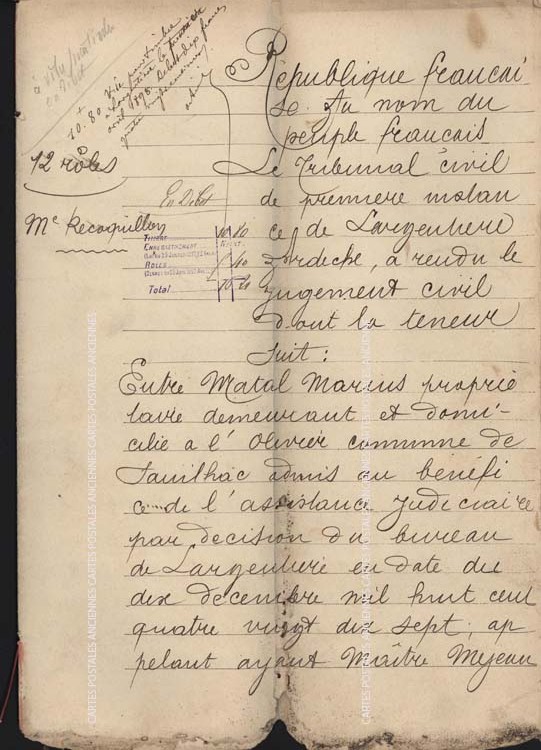 à viser pour timbre
en débet
10.80 Visé pour timbre
à Largentière le premier
avril 1898. Débet dix francs
quatre vingt centimes
12 rôles
En Débet
Me Recoquillon
TIMBRE 10 80
ENREGISTREMENT
ROLES
Total
République françai
se. Au nom du
peuple français
Le Tribunal civil
de premiere instan
ce de Largentiere
Ardeche, a rendu le
jugement civil
dont la teneur
suit :
Entre Matal Marius proprié
taire demeurant et domi-
cilié a l'Olivier commune de
Sanilhac admis au bénéfi
ce de l'assistance judiciaire
par decision du bureau
de Largentiere en date du
dix décembre mil huit cent
quatre vingt dix sept, ap
pelant ayant Maître Mejean
CARTES POSTALES ANCIENNES CARTES POSTALES ANCIENNES CARTES POSTALES ANCIENNES
CARTES POSTALES ANCIENNES CARTES POSTALES ANCIENNES